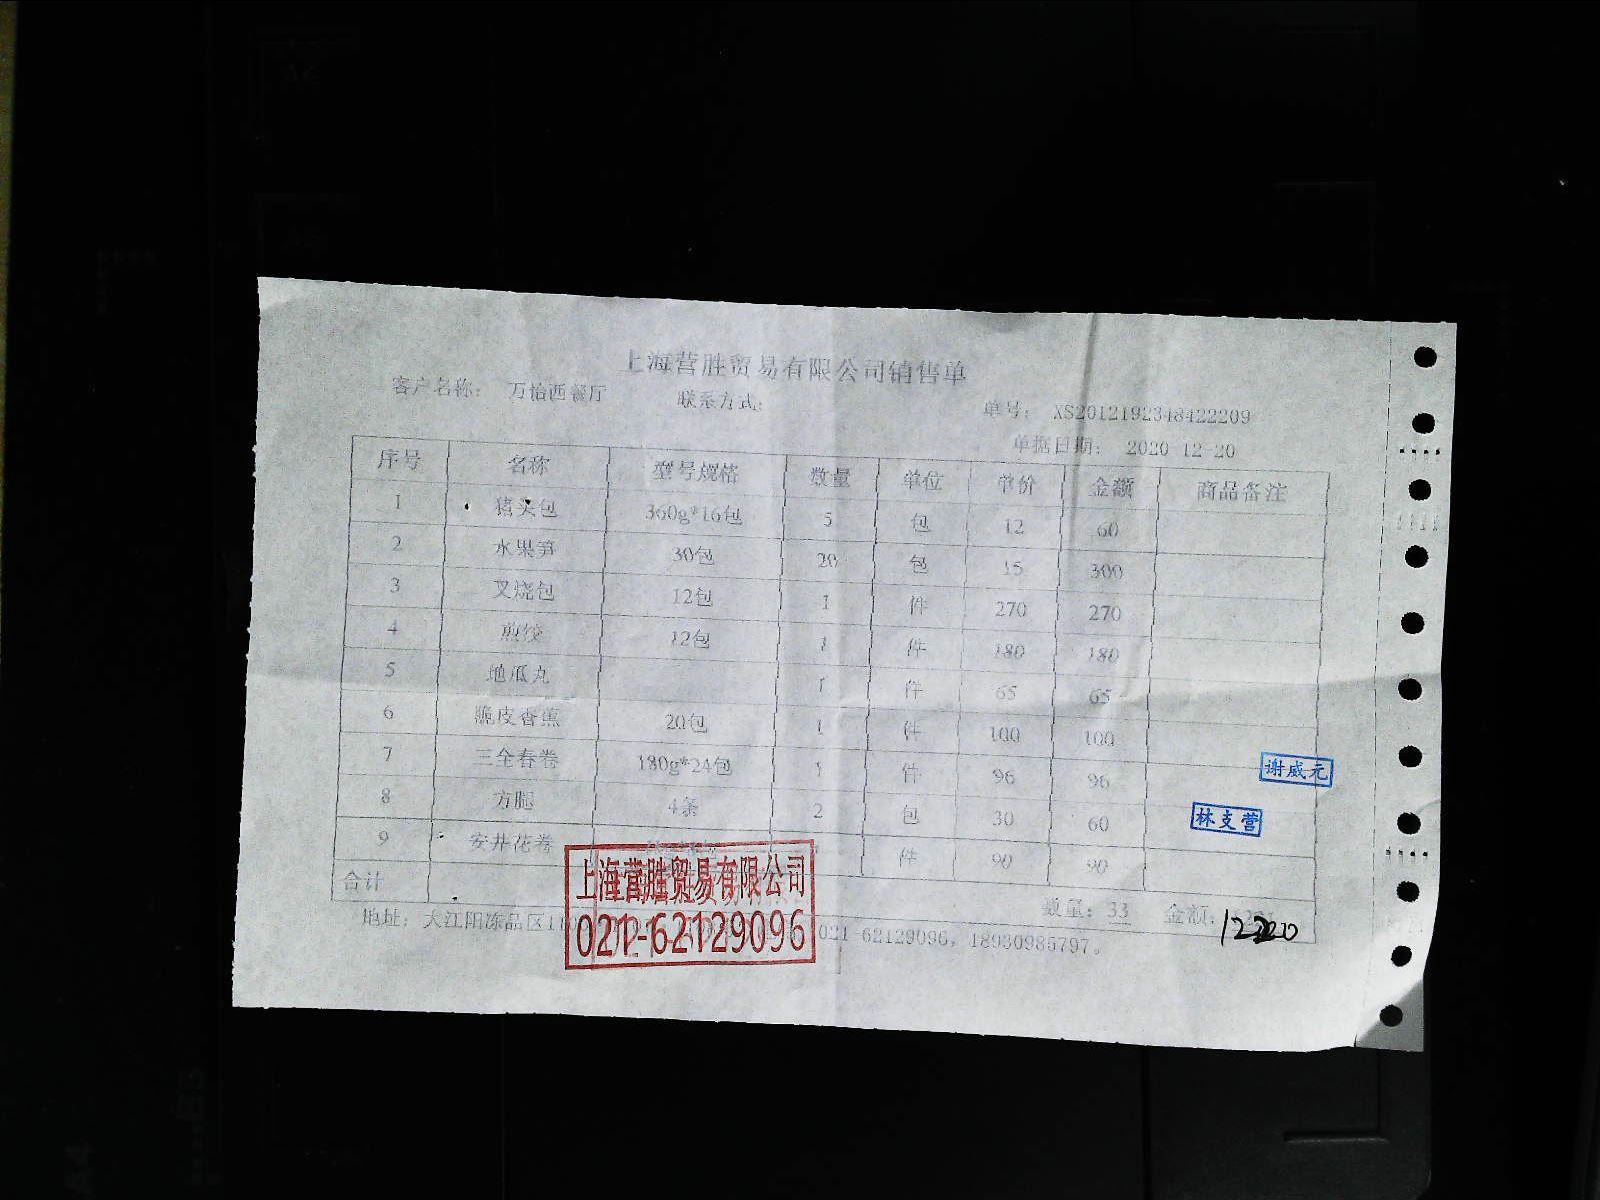 上海营胜贸易有限公司销售单
客户名称： 万怡西餐厅 联系方式： 单号： XS2012192348422209
单据日期： 2020-12-20
序号 名称 型号规格 数量 单位 单价 金额 商品备注
1 猪头包 360g*16包 5 包 12 60
2 水果笋 30包 20 包 15 300
3 叉烧包 12包 1 件 270 270
4 煎饺 12包 1 件 180 180
5 地瓜丸 1 件 65 65
6 脆皮香蕉 20包 1 件 100 100
7 三全春卷 180g*24包 1 件 96 96
8 方腿 4条 2 包 30 60
9 安井花卷 件 90 90
谢威元
林支营
合计 数量：33 金额：
1220
地址：大江阳冻品区 021-62129096，18930985797。
上海营胜贸易有限公司
021-62129096